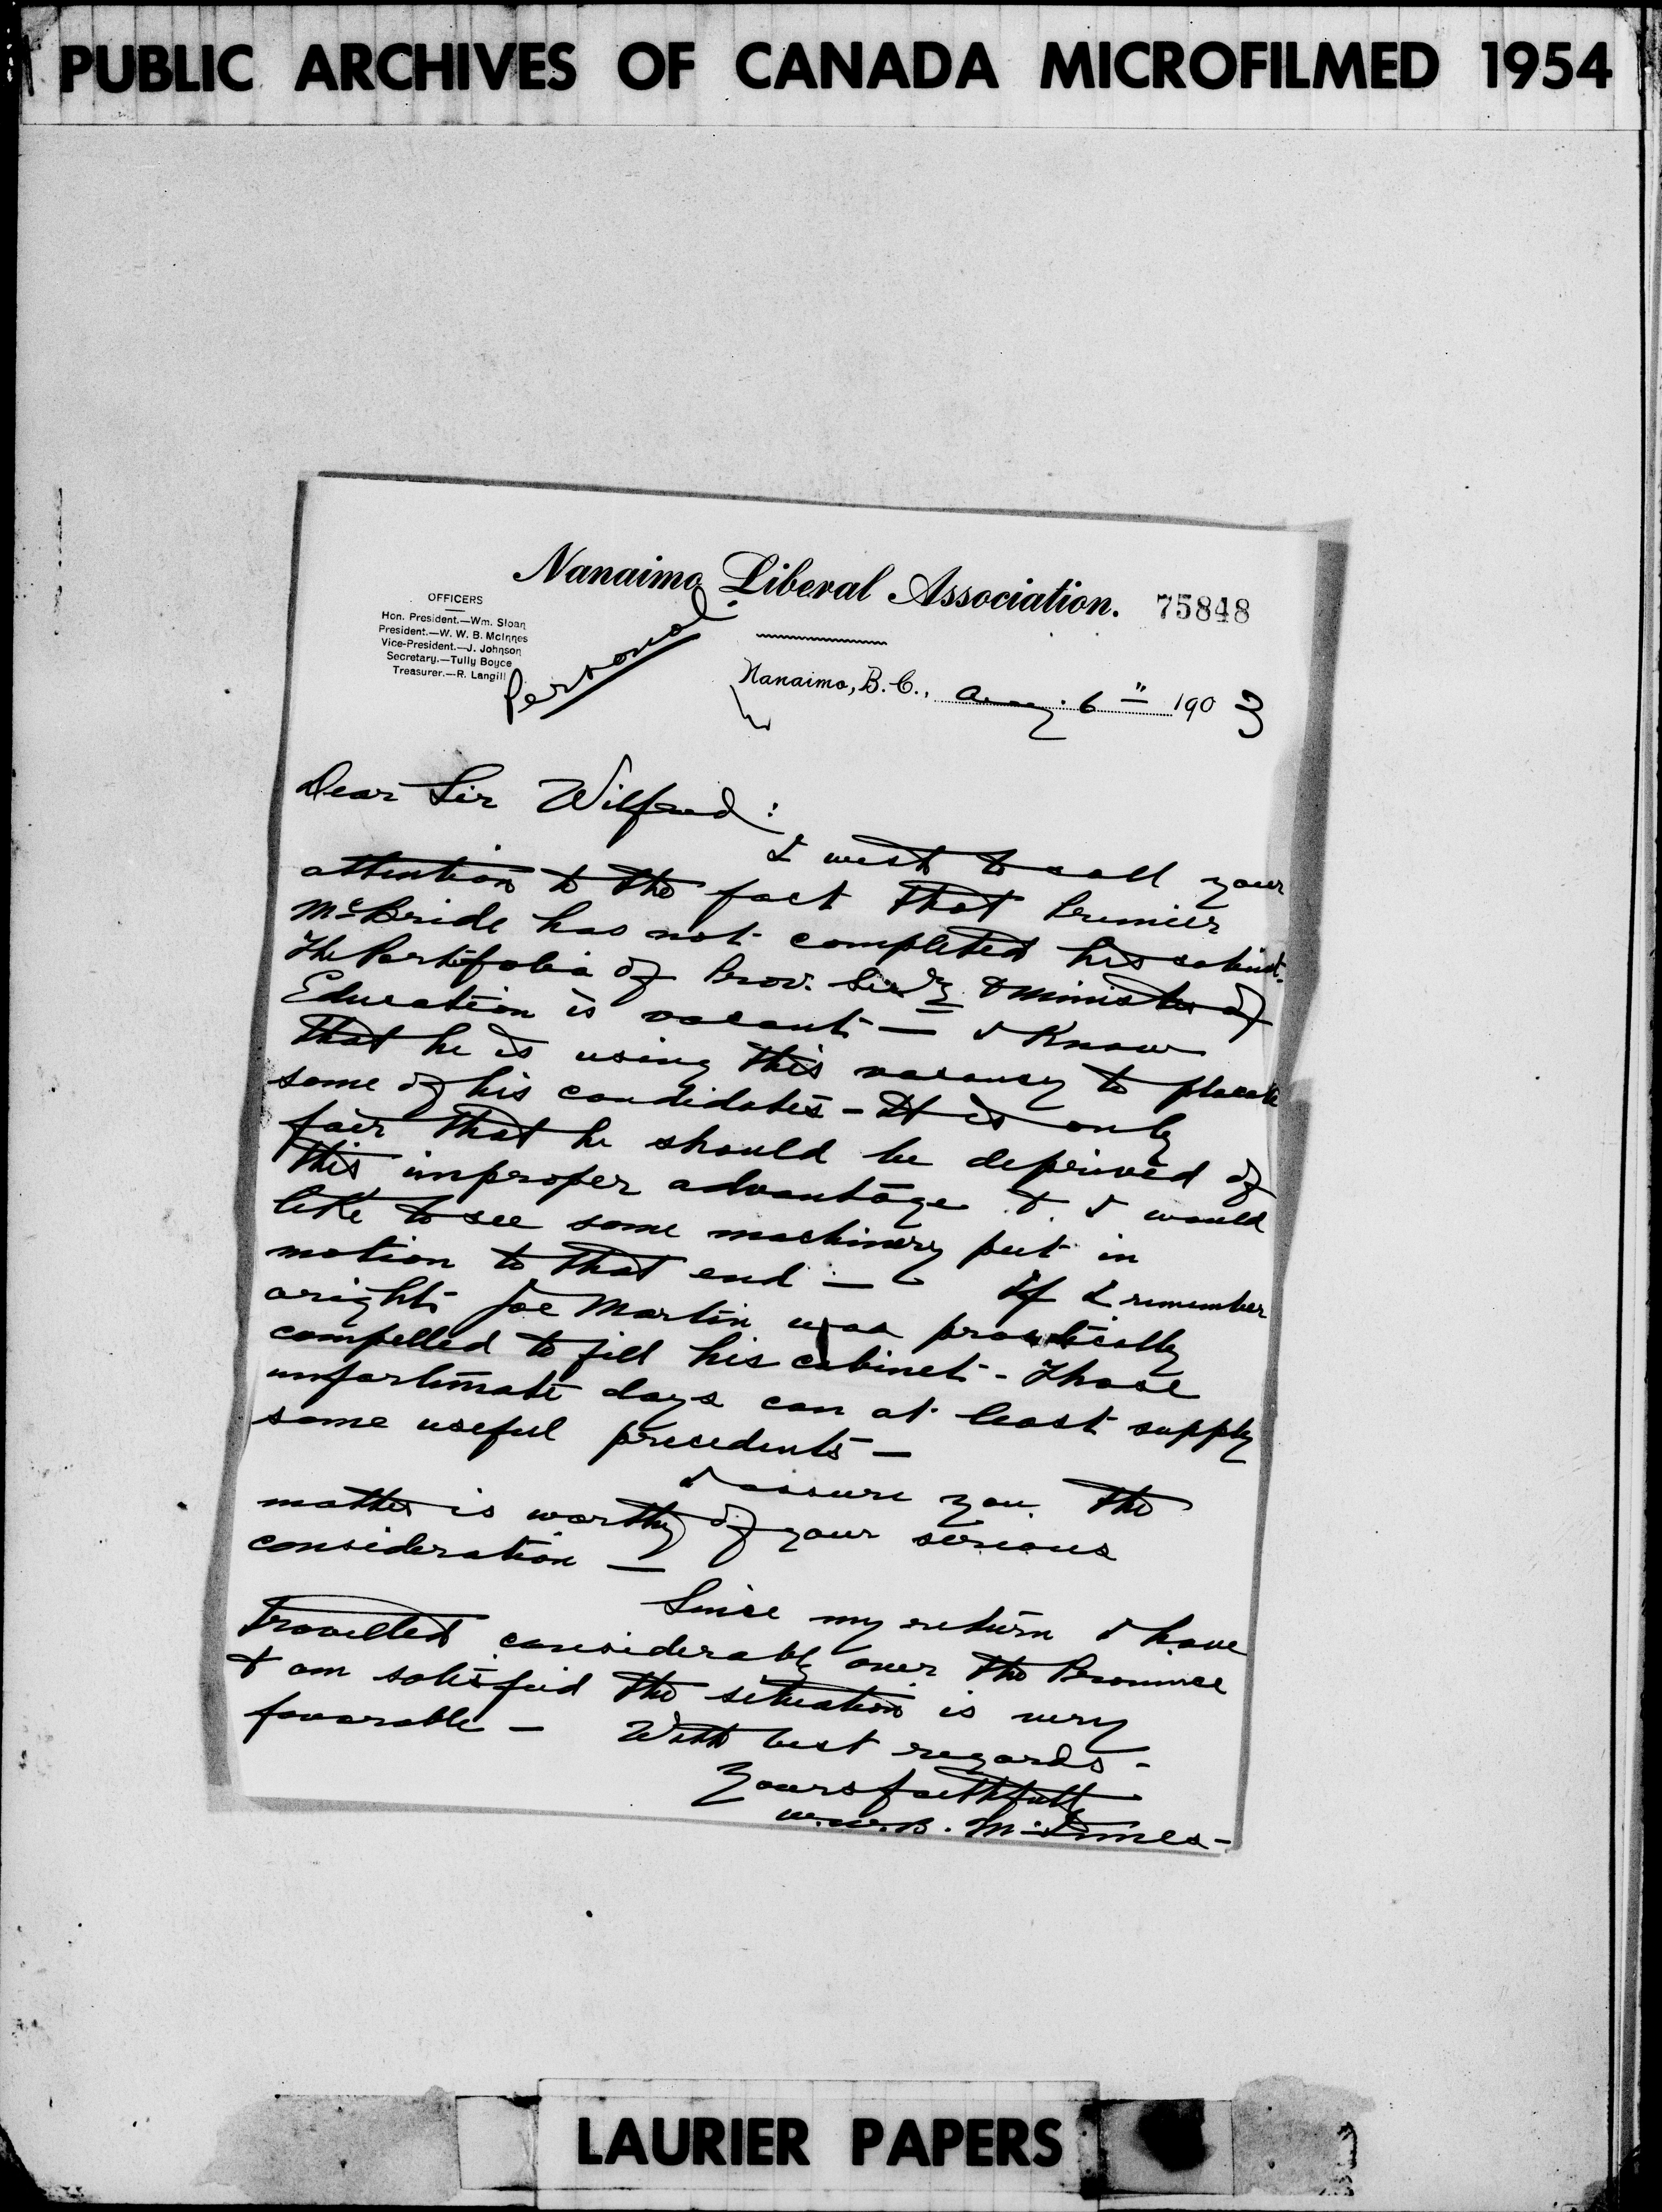 PUBLIC ARCHIVES OF CANADA MICROFILMED 1954
Nanaimo Liberal Association.
75848
OFFICERS
Hon. President.—Wm. Sloan
President.—W. W. B. McInnes
Vice-President.—J. Johnson
Secretary.—Tully Boyce
Treasurer.—R. Langill
Personal.
Nanaimo, B. C., Aug. 6" 1903
Dear Sir Wilfred:
I wish to call your
attention to the fact that Premier
McBride has not completed his cabinet.
The Portifolia of Prov. Secy & Minister of
Education is vacant — I know
that he is using this vacancy to placate
some of his candidates - It is only
fair that he should be deprived of
this improper advantage & I would
like to see some machinery put in
motion to that end — If I remember
aright Joe Martin was practically
compelled to fill his cabinet - Those
unfortunate days can at least supply
some useful precedents —
I assure you the
matter is worthy of your serious
consideration —
Since my return I have
travelled considerably over the Province
& am satisfied the situation is very
favorable — With best regards -
Yours faithfully
W.W.B. McInnes -
LAURIER PAPERS